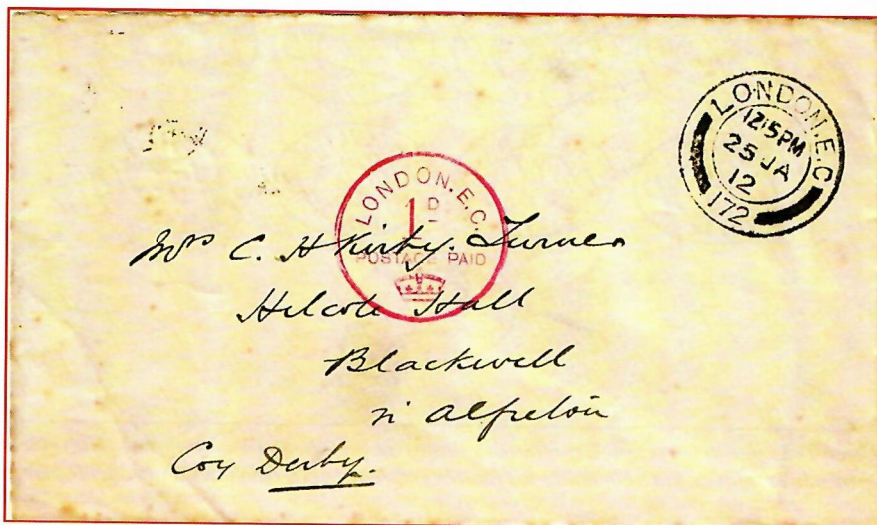 LONDON.E.C
12.15PM
25 JA
12
172
LONDON.E.C.
1D
POSTAGE PAID
Mrs C. H Kirby-Turner
Hilcote Hall
Blackwell
nr Alfreton
Coy Derby.